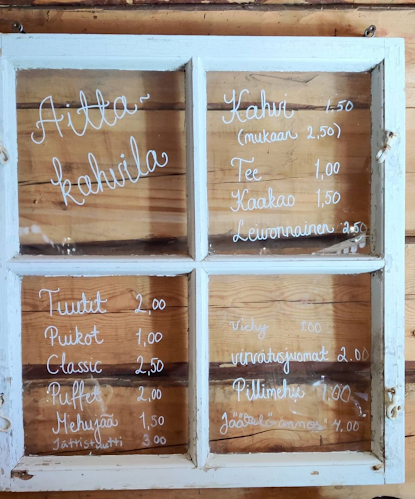 Aitta~
kahvila
Kahvi 1.50
(mukaan 2,50)
Tee 1,00
Kaakao 1,50
Leivonnainen 2.50
Tuutit 2,00
Puikot 1,00
Classic 2,50
Puffet 2,00
Mehujää 1,50
Jättistuutti 3.00
Vichy 1.00
virvoitusjuomat 2.00
Pillimehu 1.00
Jäätelöannos 4.00